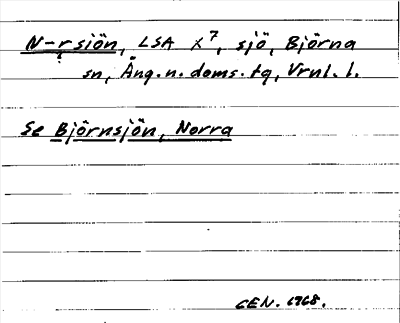 N-rsiön, LSA x7, sjö, Björna
sn, Ång.n.doms.tg, Vrnl.l.
Se Björnsjön, Norra
CEN. 1968.